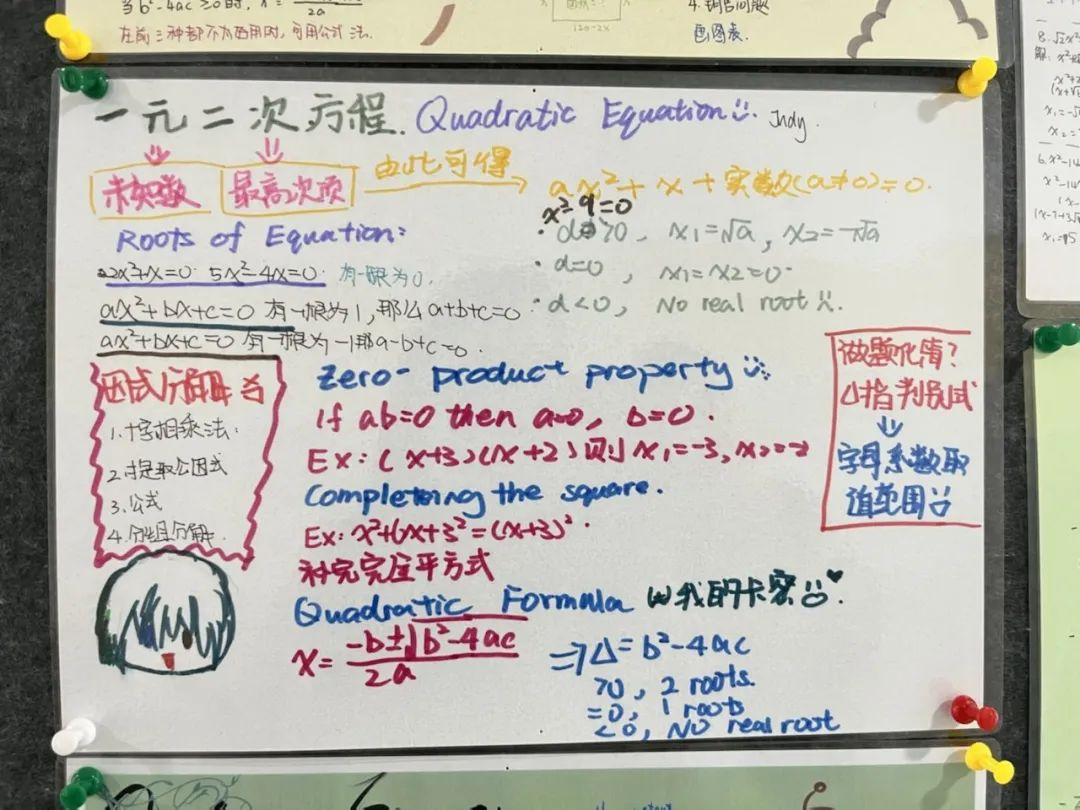 当b²-4ac≥0时, x=
2a
在前三种都不方便用时, 可用公式法.
120-2x
4.销售问题
画图表.
一元二次方程. Quadratic Equation Judy.
未知数 最高次项 由此可得 ax²+x+实数(a≠0)=0.
x²-9=0
Roots of Equation:
·d>0, x₁=√a, x₂=-√a
2x²+x=0 5x²-4x=0 有一根为0.
·d=0, x₁=x₂=0
ax²+bx+c=0 有一根为1,那么a+b+c=0
·d<0, No real root
ax²+bx+c=0 有一根为-1那a-b+c=0.
因式分解
1.十字相乘法.
2.提取公因式
3.公式
4.分组分解.
Zero-product property
If ab=0 then a=0, b=0.
Ex:(x+3)(x+2)则x₁=-3,x₂=-2
Completing the square.
Ex: x²+6x+3²=(x+3)².
补完完全平方式
做题化简?
△指判别式
⇓
字母系数取
值范围
Quadratic Formula 我的卡密♥.
x=-b±√b²-4ac
2a
⇒△=b²-4ac
>0, 2 roots.
=0, 1 roots
<0, No real root